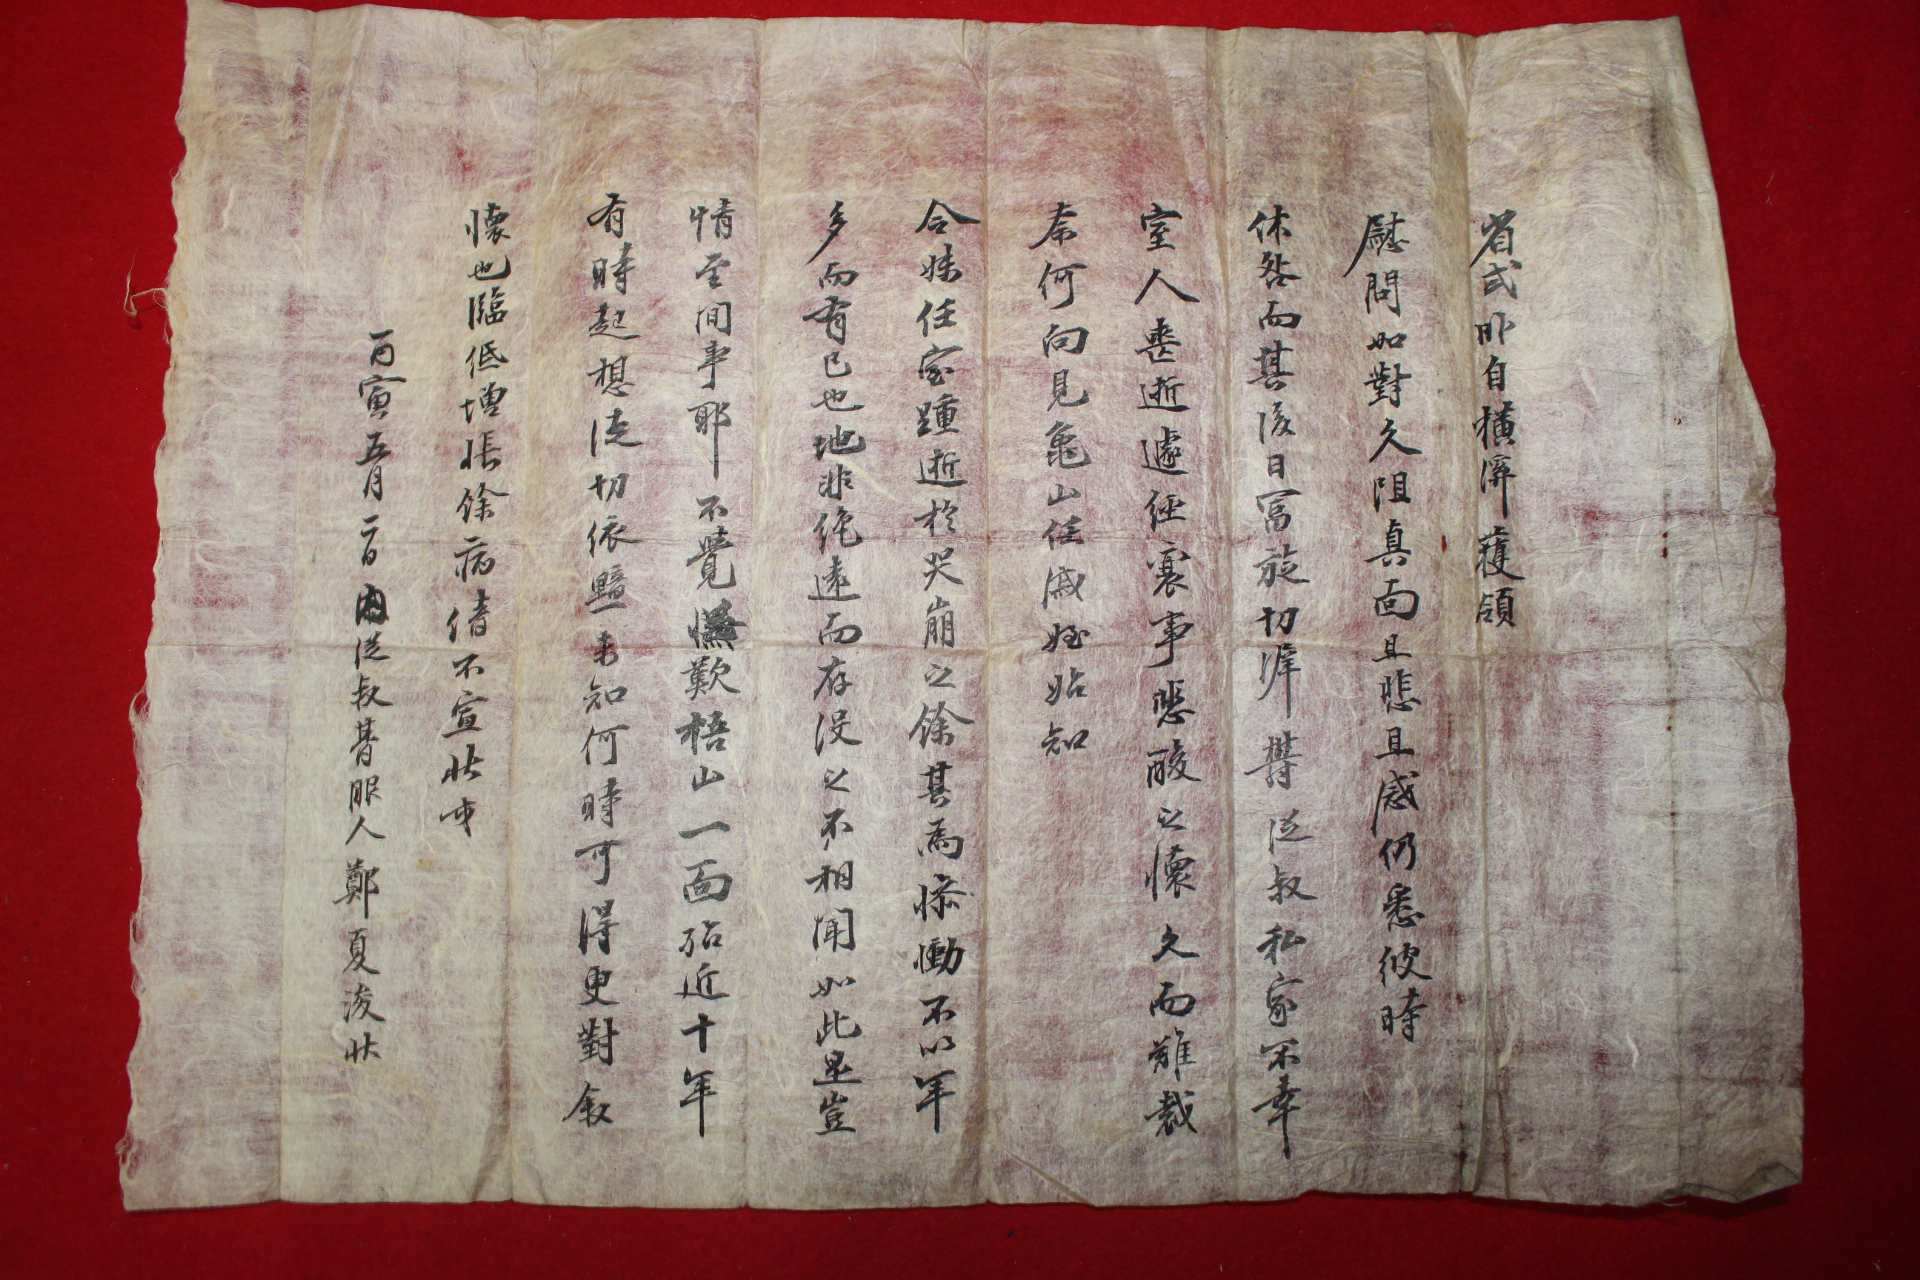 省式昨自橫濘獲領
慰問如對久阻眞面且悲且感仍悉彼時
休咎而其後日富旋切漄 從叔私家不幸
室人喪逝遽經襄事悲酸之懷久而難裁
奈何向見龜山任戚姪姑知
令妹任室踵逝於哭崩之餘其爲慘慟不以年
多而有已也地非絶遠而存沒之不相聞如此是豈
情至間事耶不覺慨歎梧山一面殆近十年
有時起想徒切依黯未知何時可得更對敍
懷也臨低增悵餘病倩不宣狀式
丙寅五月二日內從叔朞服人鄭夏浚狀